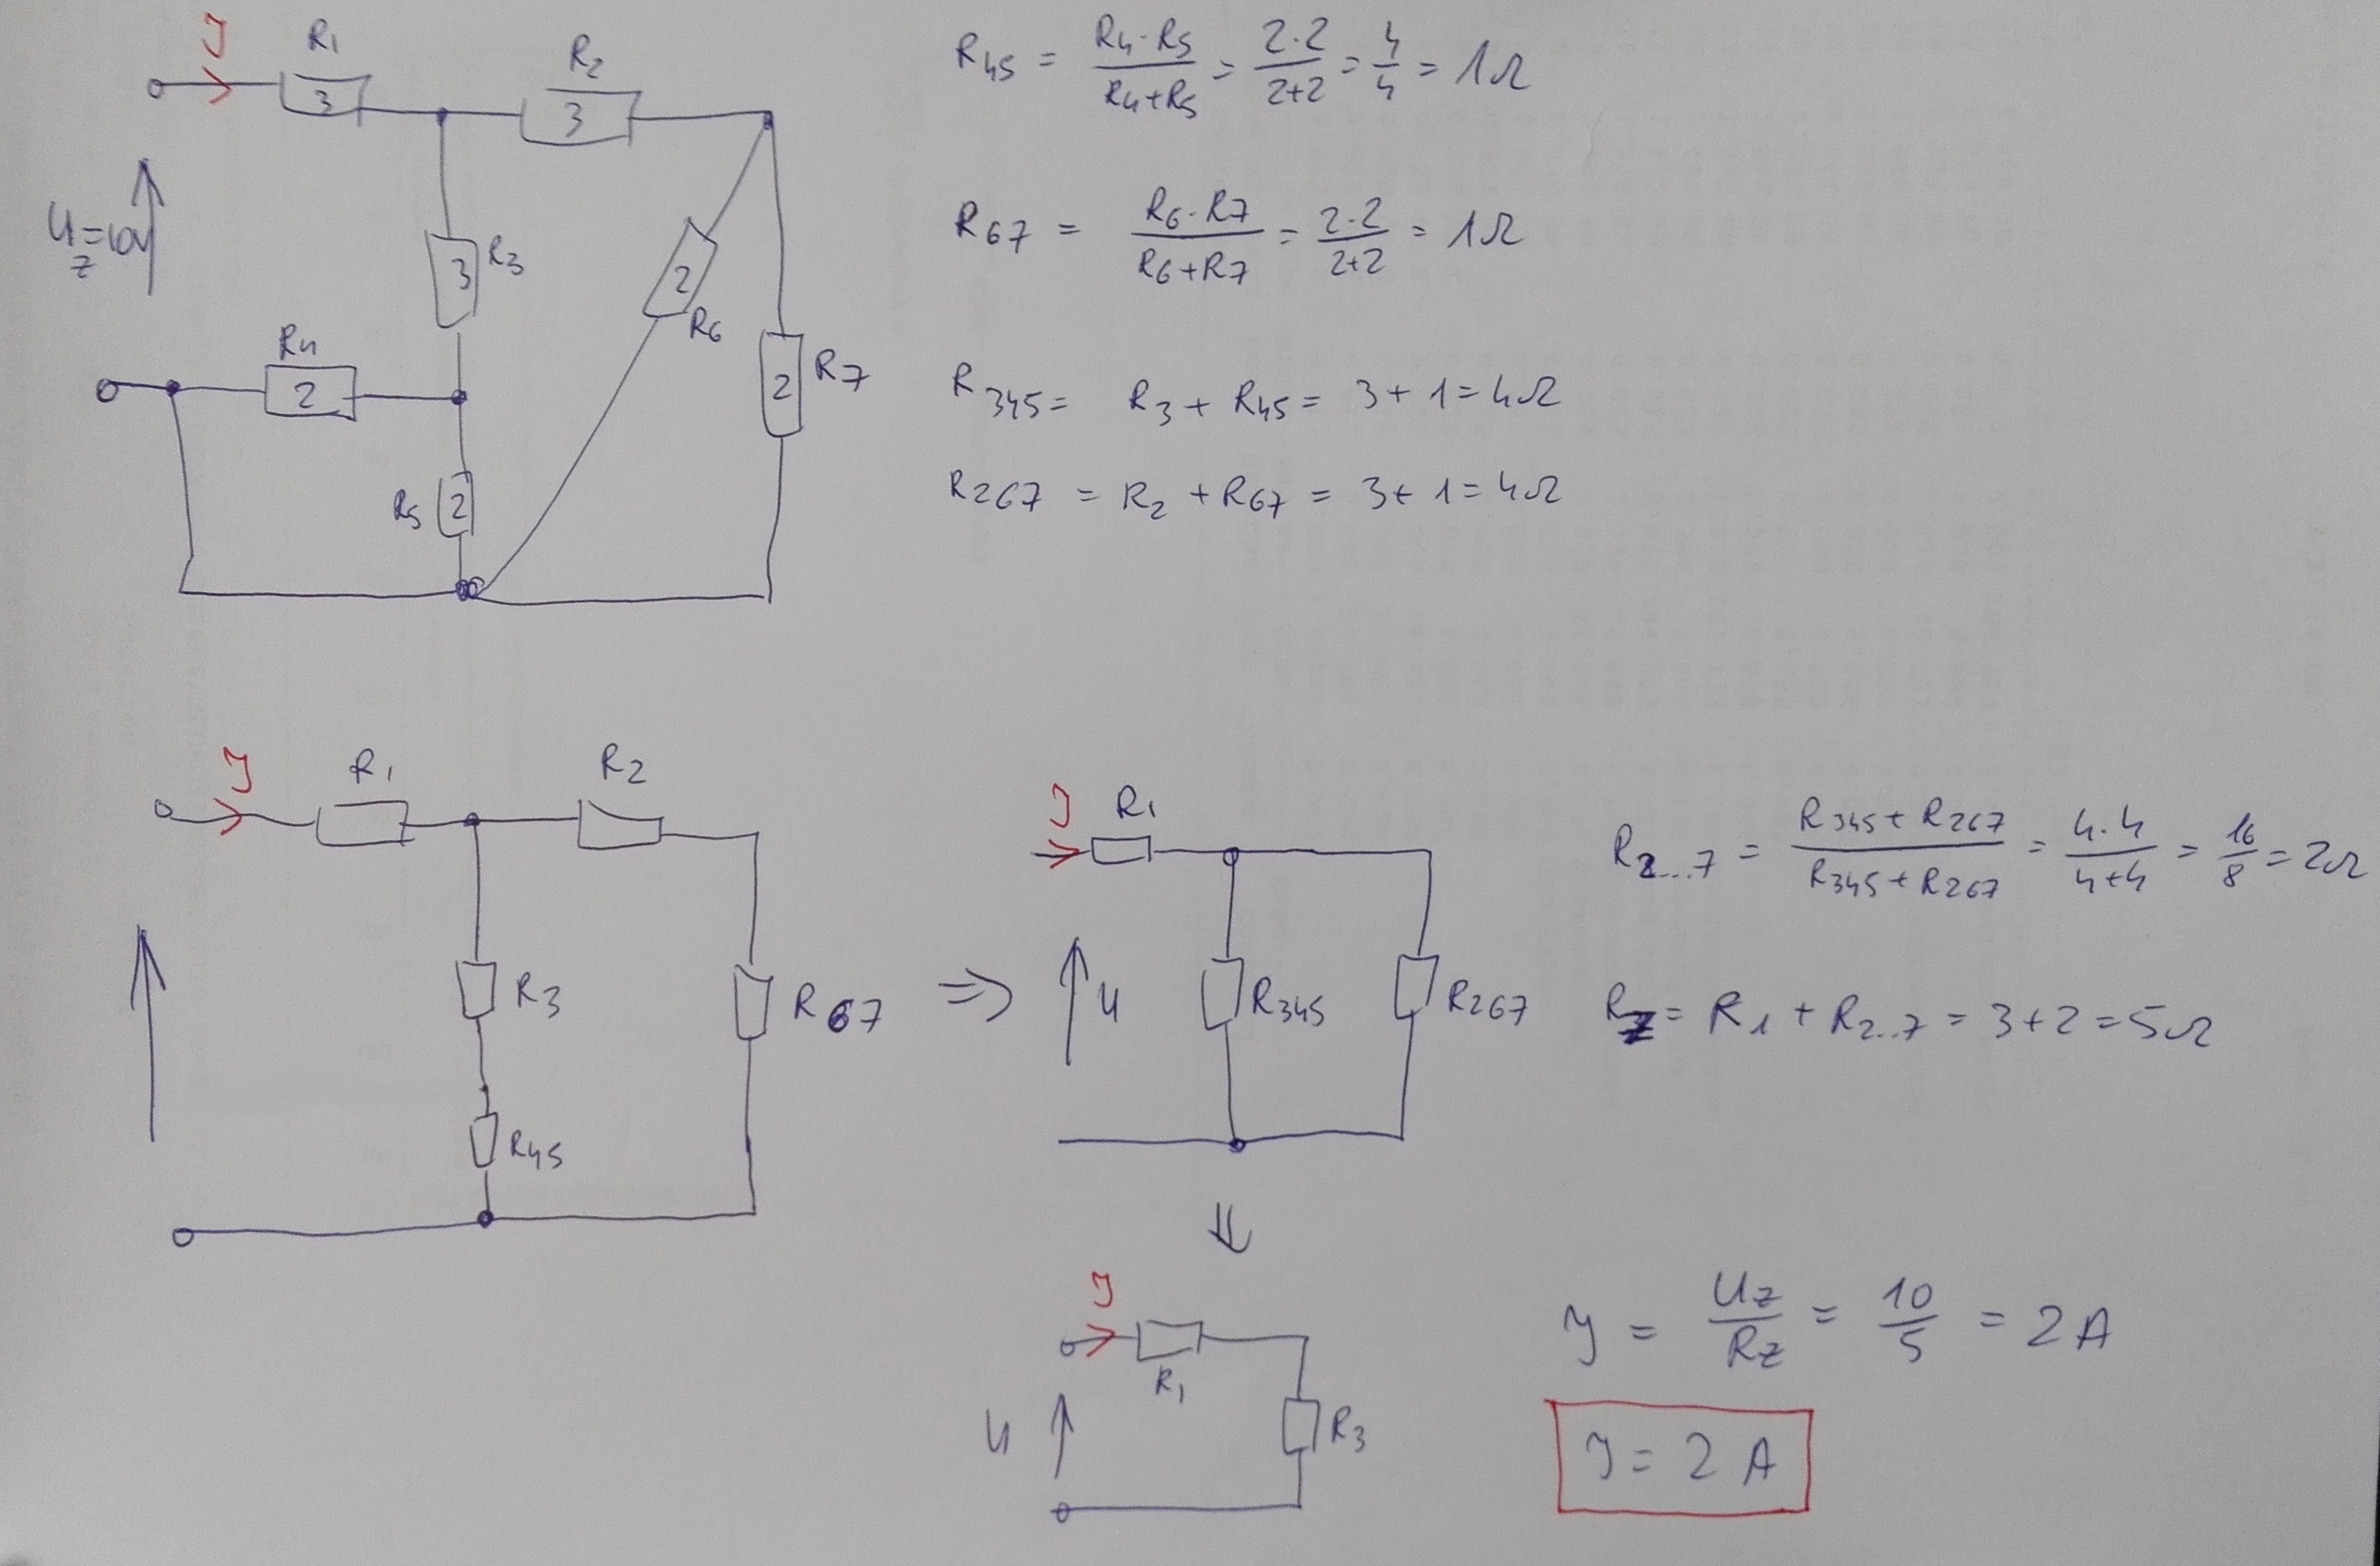 I R1 3
R2 3
Uz=10V
R3 3
R4 2
R5 2
R6 2
R7 2
R45 = R4·R5 / R4+R5 = 2·2 / 2+2 = 4/4 = 1Ω
R67 = R6·R7 / R6+R7 = 2·2 / 2+2 = 1Ω
R345 = R3 + R45 = 3 + 1 = 4Ω
R267 = R2 + R67 = 3 + 1 = 4Ω
I R1 R2
R3 R67
R45
⇒
I R1
U R345 R267
R2...7 = R345 + R267 / R345 + R267 = 4·4 / 4+4 = 16/8 = 2Ω
Rz = R1 + R2..7 = 3 + 2 = 5Ω
⇓
I
R1
U R3
I = Uz / Rz = 10 / 5 = 2 A
I = 2 A